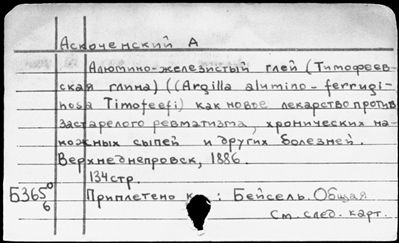 Аскоченский А
Алюмино-железистый глей (Тимофеев-
ская глина) ((Argilla alumino-ferrugi-
nosa Timofeefi) как новое лекарство против
застарелого ревматизма, хронических на-
кожных сыпей и других болезней.
Верхнеднепровск, 1886.
134 стр.
Б365 0/6 Приплетено к : Бейсель. Общая
См. след. карт.